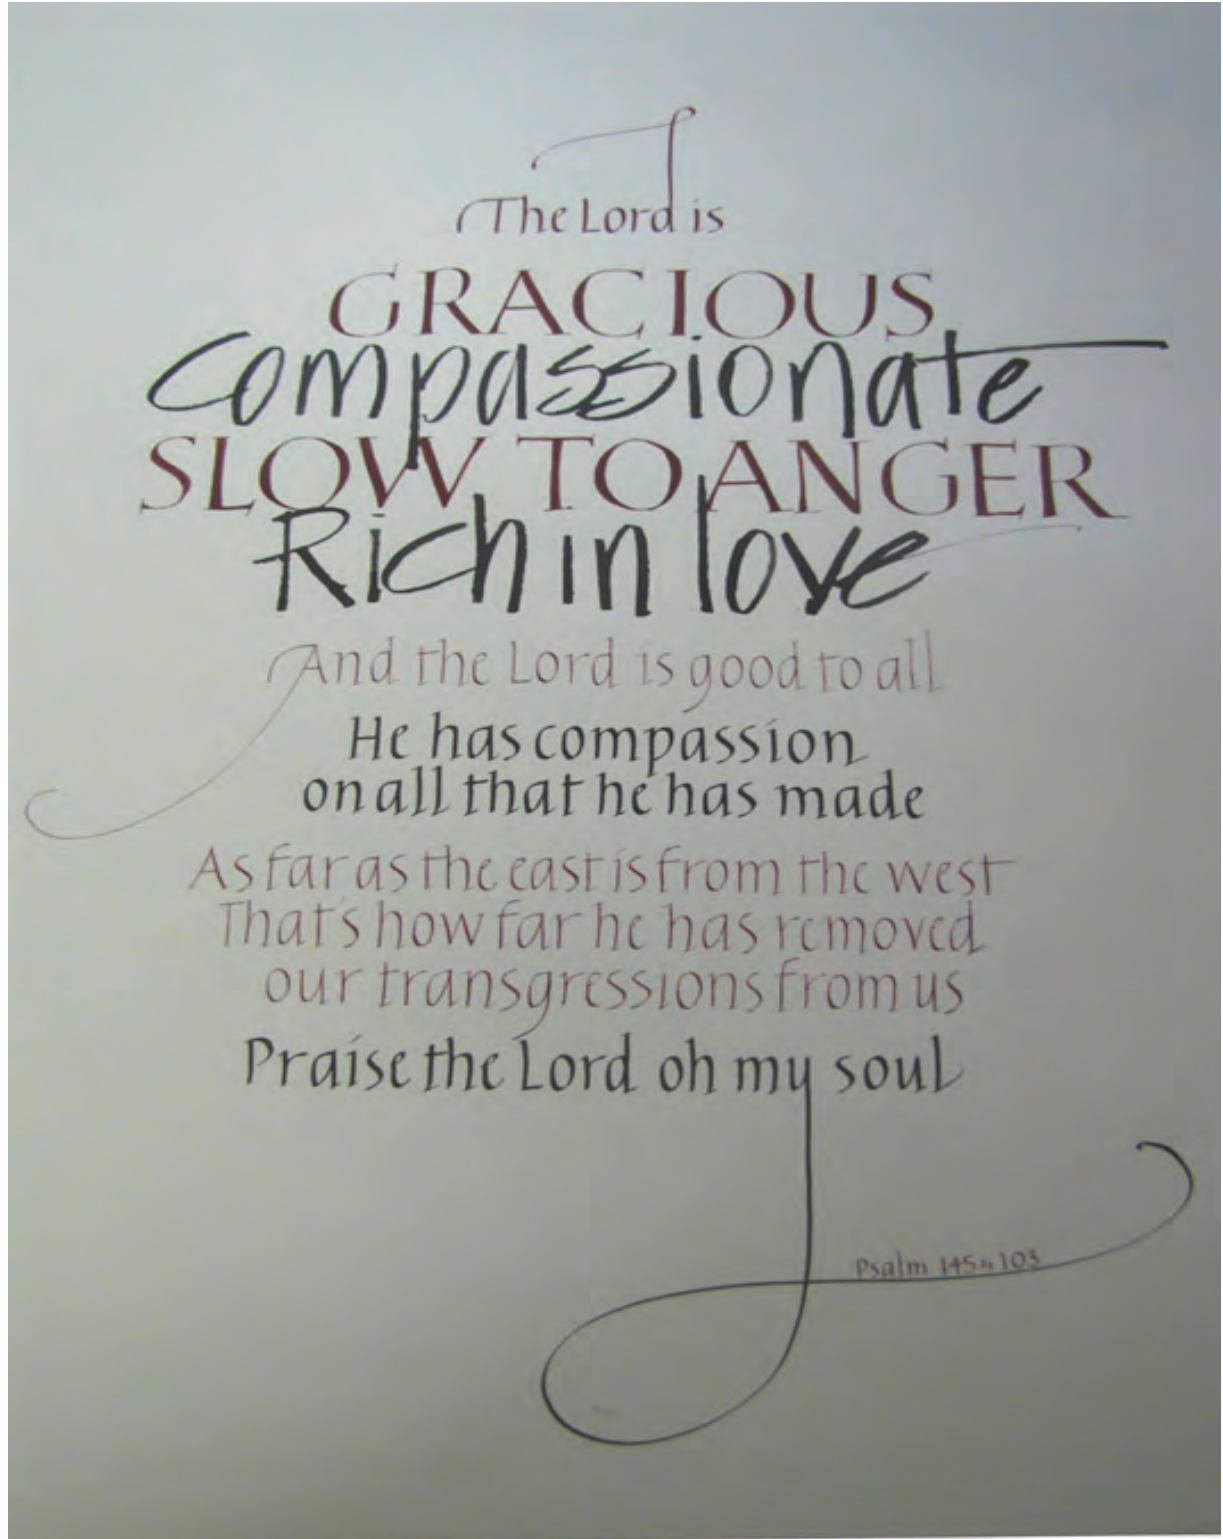 The Lord is
GRACIOUS
Compassionate
SLOW TO ANGER
Rich in love
And the Lord is good to all
He has compassion
on all that he has made
As far as the east is from the west
That's how far he has removed
our transgressions from us
Praise the Lord oh my soul
Psalm 145 103